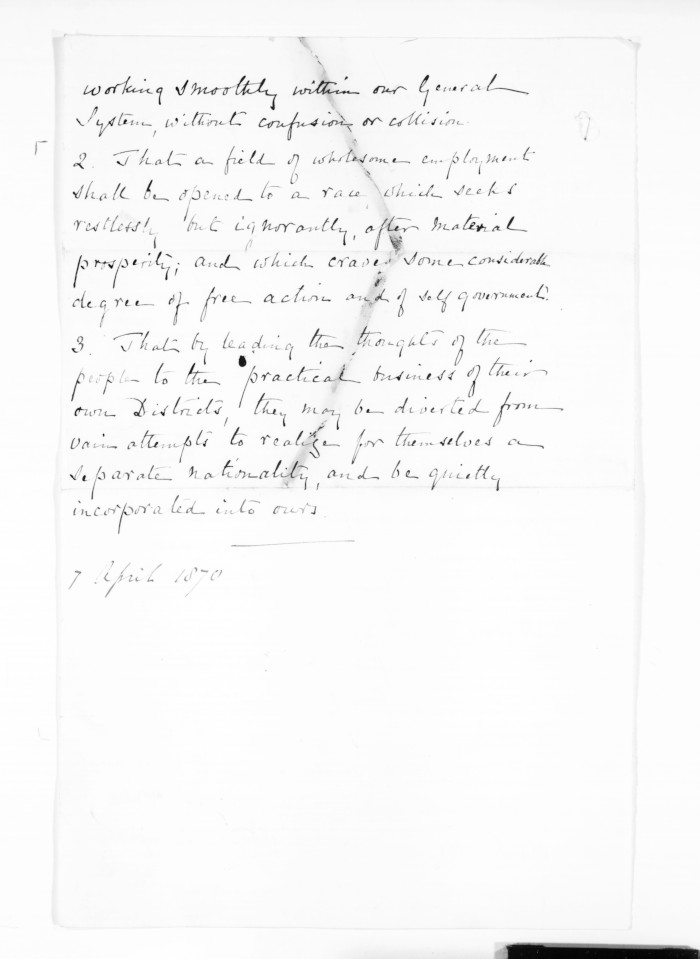 working smoothly within our General
System, without confusion or collision.
2. That a field of wholesome employment
shall be opened to a race, which seeks
restlessly but ignorantly, after material
prosperity; and which craves some considerable
degree of free action and of self government.
3. That by leading the thoughts of the
people to the practical business of their
own Districts, they may be diverted from
vain attempts to realize for themselves a
separate nationality, and be quietly
incorporated into ours.
7 April 1870